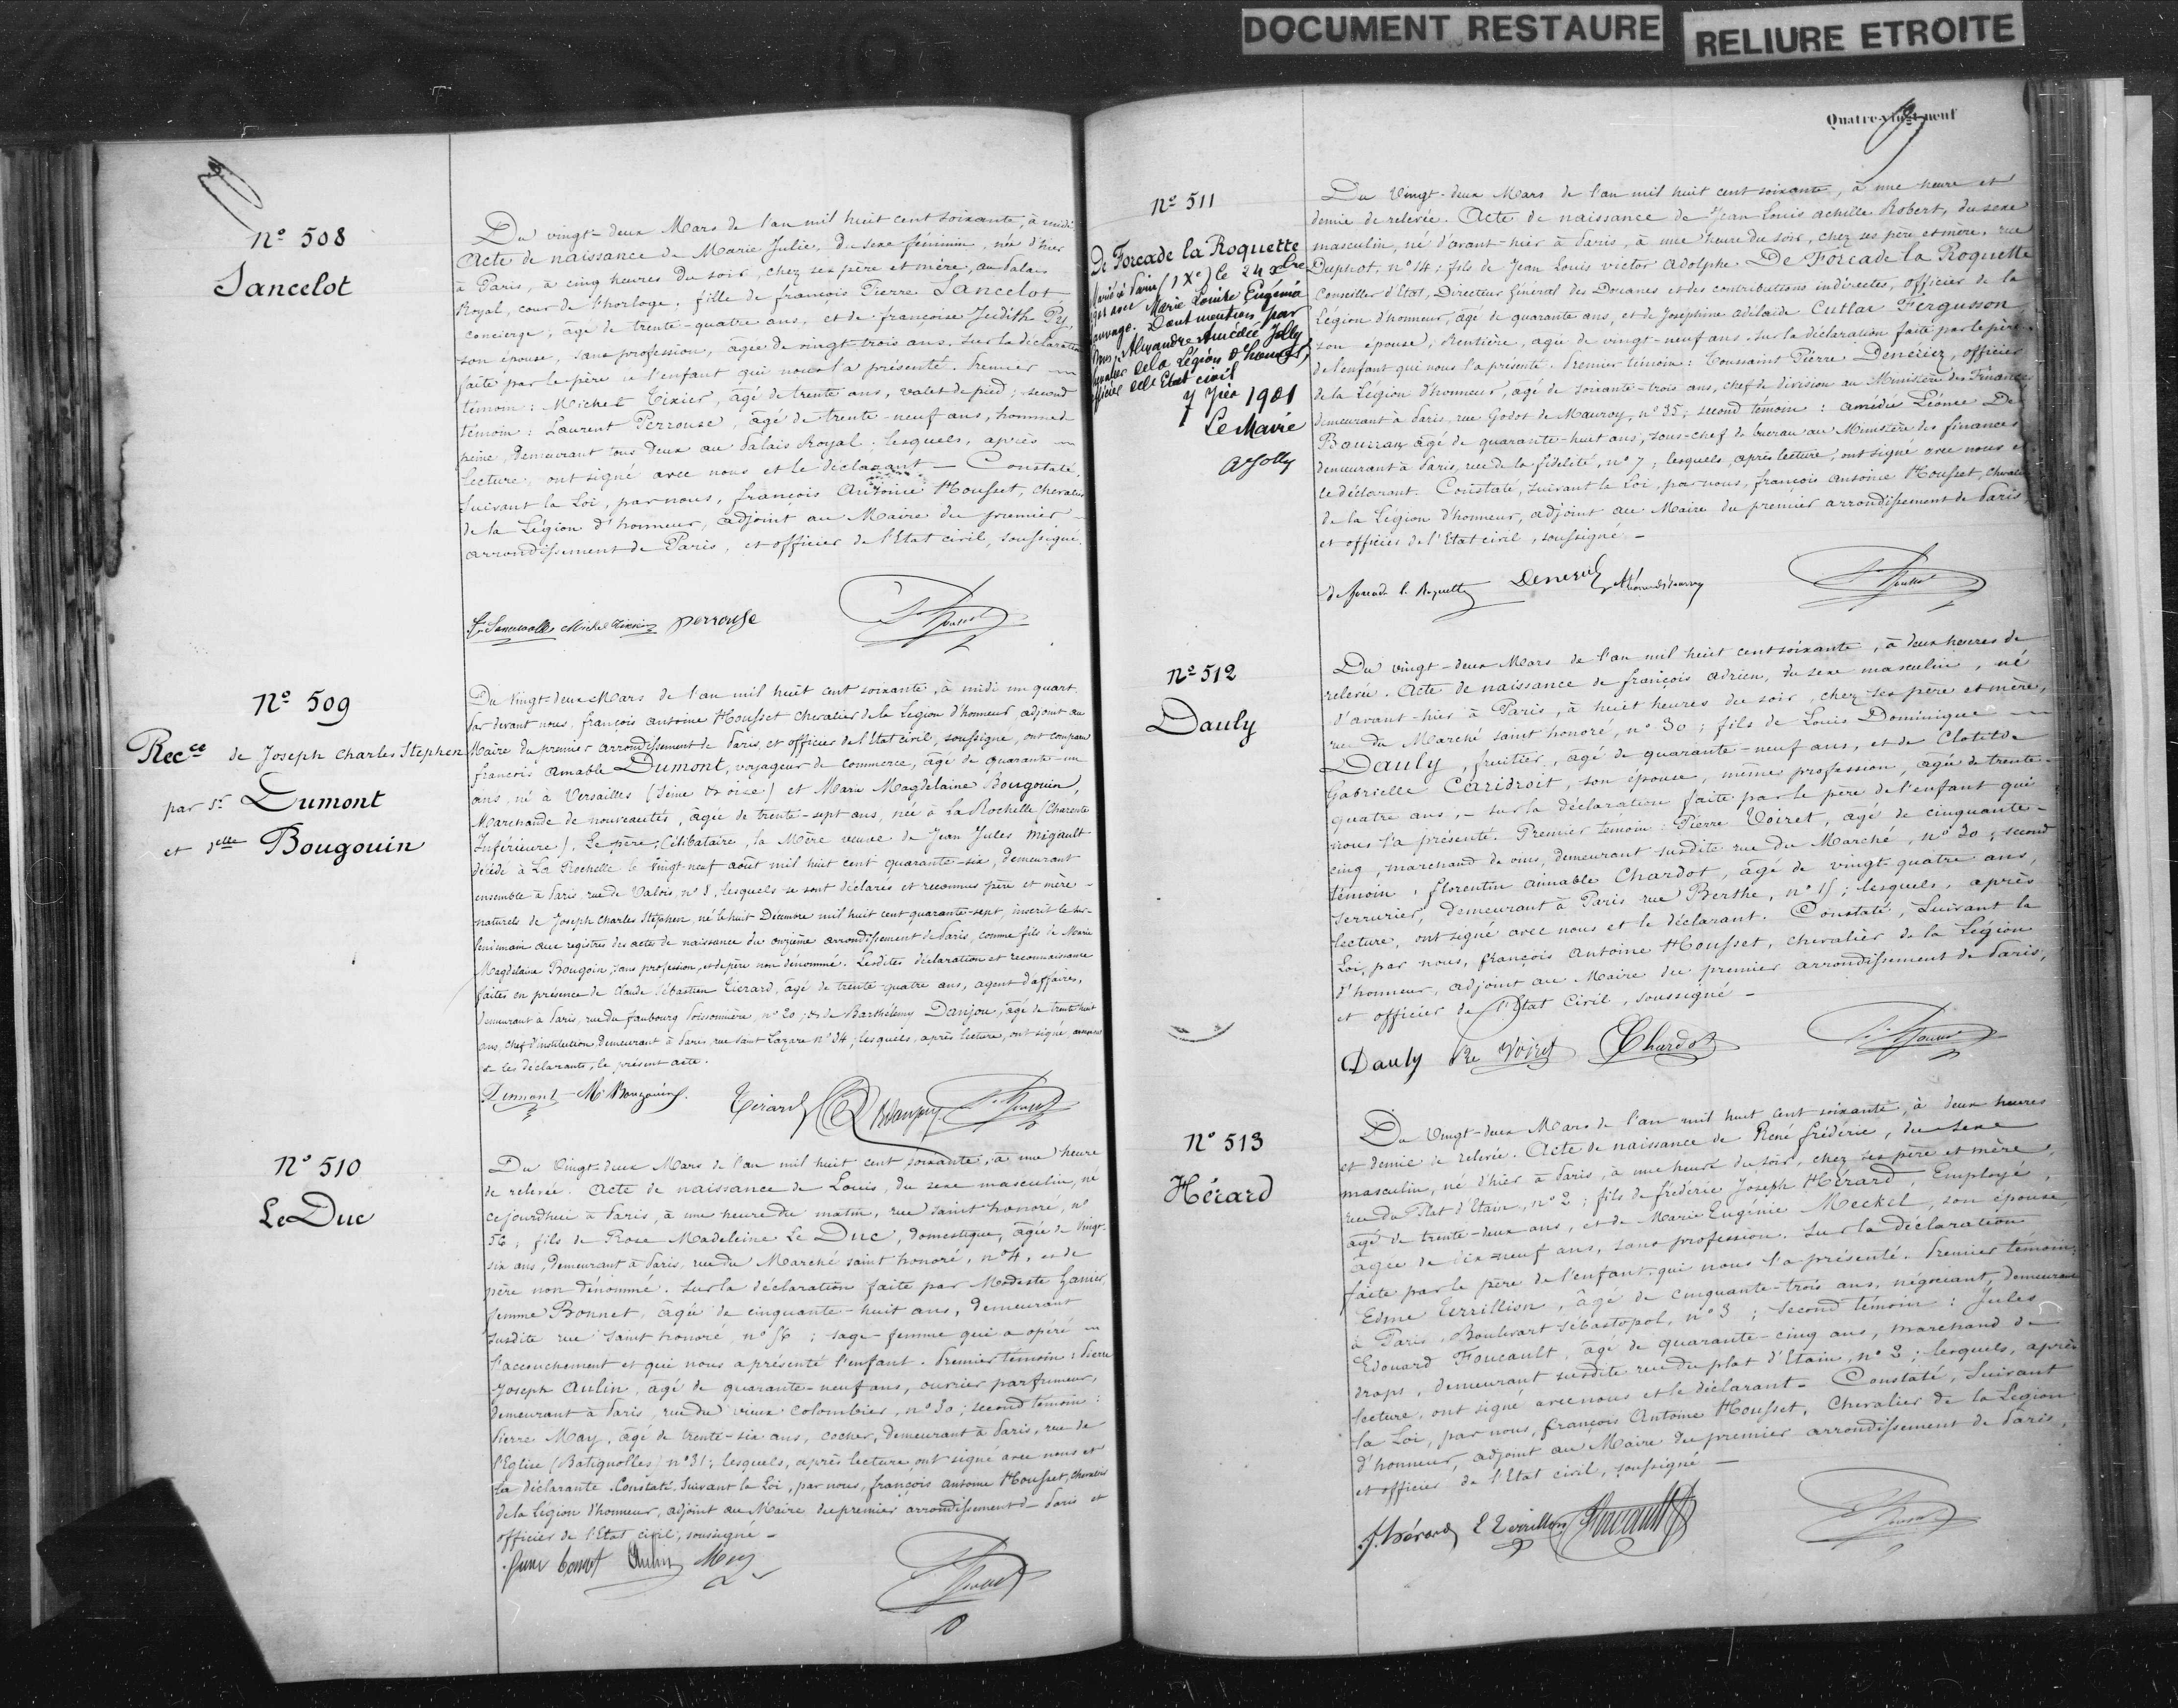 DOCUMENT RESTAURE
RELIURE ETROITE
Nº 508
Sancelot
Du vingt-deux Mars de l'an mil huit cent soixante, à midi
Acte de naissance de Marie Julie, du sexe féminin, née d'hier
à Paris, à cinq heures du soir, chez ses père et mère, au Palais
Royal, cour de l'horloge, fille de françois Pierre Sancelot
concierge, âgé de trente-quatre ans, et de françoise Judith Py,
son épouse, sans profession, âgée de vingt-trois ans. Sur la déclaration
faite par le père de l'enfant qui nous l'a présenté. Premier
témoin: Michel Tixier, âgé de trente ans, valet de pied; second
témoin: Laurent Perrouse, âgé de trente-neuf ans, homme de
peine, demeurant tous deux au Palais Royal; lesquels, après
lecture, ont signé avec nous et le déclarant - Constaté,
Suivant la Loi, par nous, françois Antoine Housset, chevalier
de la Légion d'honneur, adjoint au Maire du premier
arrondissement de Paris, et officier de l'Etat civil, soussigné.
Michel Tixier perrouse
Nº 509
Recce de Joseph Charles Stephen
par sr Dumont
et delle Bougouin
Du Vingt-deux Mars de l'an mil huit cent soixante, à midi un quart.
Par devant nous, françois antoine Housset chevalier de la Légion d'honneur, adjoint au
Maire du premier arrondissement de Paris, et officier de l'Etat civil, soussigné, ont comparu
françois Amable Dumont, voyageur de commerce, âgé de quarante-un
ans, né à Versailles (Seine & oise) et Marie Magdelaine Bougouin,
Marchande de nouveautés, âgée de trente-sept ans, née à La Rochelle (Charente
Inférieure). Le père, Célibataire, la Mère veuve de Jean Jules Migault
décédé à La Rochelle le vingt-neuf août mil huit cent quarante-six, demeurant
ensemble à Paris rue de Valois nº 8, lesquels se sont déclarés et reconnus père et mère
naturels de Joseph Charles Stephen, né le huit Décembre mil huit cent quarante-sept, inscrit le sur-
lendemain aux registres des actes de naissance du onzième arrondissement de Paris, comme fils de Marie
Magdelaine Bougoin, sans profession, et de père non dénommé. Lesdites déclaration et reconnaissance
faites en présence de Claude Sébastien Tiérard, âgé de trente-quatre ans, agent d'affaires,
demeurant à Paris, rue du faubourg Poissonnière, nº 20, & de Barthélemy Danjou, âgé de trente huit
ans, chef d'institution, demeurant à Paris, rue Saint Lazare nº 34; lesquels, après lecture, ont signé avec nous
& les déclarants, le présent acte.
Dumont M Bougouin
Nº 510
Le Duc
Du Vingt-deux Mars de l'an mil huit cent soixante, à une heure
de relevée. Acte de naissance de Louis, du sexe masculin, né
cejourdhui à Paris, à une heure du matin, rue saint honoré, nº
56, fils de Rose Madeleine Le Duc, domestique, âgée de Vingt-
six ans, demeurant à Paris, rue du Marché saint honoré, nº 4, et de
père non dénommé. Sur la déclaration faite par Modeste Ganier,
femme Bonnet, âgée de cinquante-huit ans, demeurant
susdite rue saint honoré, nº 56; sage-femme qui a opéré
l'accouchement et qui nous a présenté l'enfant. Premier témoin: Pierre
Joseph Aulin, âgé de quarante-neuf ans, ouvrier parfumeur,
demeurant à Paris, rue du vieux Colombier, nº 30; second témoin:
Pierre May, âgé de trente-six ans, cocher, demeurant à Paris, rue de
l'Eglise (Batignolles) nº 31; lesquels, après lecture, ont signé avec nous et
La déclarante. Constaté, Suivant la Loi, par nous, françois antoine Housset, chevalier
de la Légion d'honneur, adjoint au Maire du premier arrondissement de Paris et
officier de l'Etat civil, soussigné -
Aulin May
Quatre-vingt-neuf
Nº 511
De Forcade la Roquette
Marié à Paris (IXe) le 24 xbre
1901 avec Marie Louise Eugénia
Sauvage. Dont mention par
Nous, Alexandre Amédée Jolly
Chevalier de la Légion d'honneur,
officier de l'Etat civil
1901
Le Maire
A Jolly
Du Vingt-deux Mars de l'an mil huit cent soixante, à une heure et
demie de relevée. Acte de naissance de Jean Louis achille Robert, du sexe
masculin, né d'avant-hier à Paris, à une heure du soir, chez ses père et mère, rue
Duphot, nº 14; fils de Jean Louis victor Adolphe De Forcade la Roquette
Conseiller d'Etat, Directeur Général des Douanes et des contributions indirectes, officier de la
Légion d'honneur, âgé de quarante ans, et de Joséphine adélaïde Cutlar Fergusson
son épouse, Rentière, âgée de vingt-neuf ans. Sur la déclaration faite par le père
de l'enfant qui nous l'a présenté. Premier témoin: Toussaint Pierre Denériez, officier
de la Légion d'honneur, âgé de soixante-trois ans, chef de division au Ministère des Finances
demeurant à Paris, rue Godot de Mauroy, nº 35; second témoin: amédée Léonce De
Bourran âgé de quarante-huit ans, sous-chef de bureau au Ministère des finances
demeurant à Paris, rue de la fidélité, nº 7; lesquels, après lecture, ont signé avec nous et
le déclarant. Constaté, suivant la Loi, par nous, françois antoine Housset, chevalier
de la Légion d'honneur, adjoint au Maire du premier arrondissement de Paris
et officier de l'Etat civil, soussigné -
de forcade la Roquette
Nº 512
Dauly
Du vingt-deux Mars de l'an mil huit cent soixante, à deux heures de
relevée. Acte de naissance de françois adrien, du sexe masculin, né
d'avant-hier à Paris, à huit heures du soir, chez ses père et mère,
rue du Marché saint honoré, nº 30; fils de Louis Dominique
Dauly, fruitier, âgé de quarante-neuf ans, et de Clotilde
Gabrielle Caridroit, son épouse, même profession, âgée de trente-
quatre ans, - sur la déclaration faite par le père de l'enfant qui
nous l'a présenté. Premier témoin: Pierre Voiret, âgé de cinquante-
cinq, marchand de vins, demeurant susdite rue du Marché, nº 30; second
témoin, florentin aimable Chardot, âgé de vingt-quatre ans,
serrurier, demeurant à Paris rue Berthe, nº 15; lesquels, après
lecture, ont signé avec nous et le déclarant. Constaté, Suivant la
Loi, par nous, françois Antoine Housset, chevalier de la Légion
d'honneur, adjoint au Maire du premier arrondissement de Paris,
et officier de l'Etat civil, soussigné -
Dauly Voiret Chardot
Nº 513
Hérard
Du Vingt-deux Mars de l'an mil huit cent soixante, à deux heures
et demie de relevée. Acte de naissance de René frédéric, du sexe
masculin, né d'hier à Paris, à une heure du soir, chez ses père et mère,
rue du Plat d'Etain, nº 2; fils de frédéric Joseph Hérard, Employé,
âgé de trente-deux ans, et de Marie Eugénie Meckel, son épouse,
âgée de dix-neuf ans, sans profession. Sur la déclaration
faite par le père de l'enfant, qui nous l'a présenté. Premier témoin,
Edme Terrillion, âgé de cinquante-trois ans, négociant, demeurant
à Paris, Boulevart Sébastopol, nº 3; Second témoin: Jules
Edouard Foucault, âgé de quarante-cinq ans, marchand de
draps, demeurant susdite rue du plat d'Etain, nº 2; lesquels, après
lecture, ont signé avec nous et le déclarant - Constaté, Suivant
la Loi, par nous, françois Antoine Housset, Chevalier de la Légion
d'honneur, adjoint au Maire du premier arrondissement de Paris,
et officier de l'Etat civil, soussigné -
f. hérard Foucault